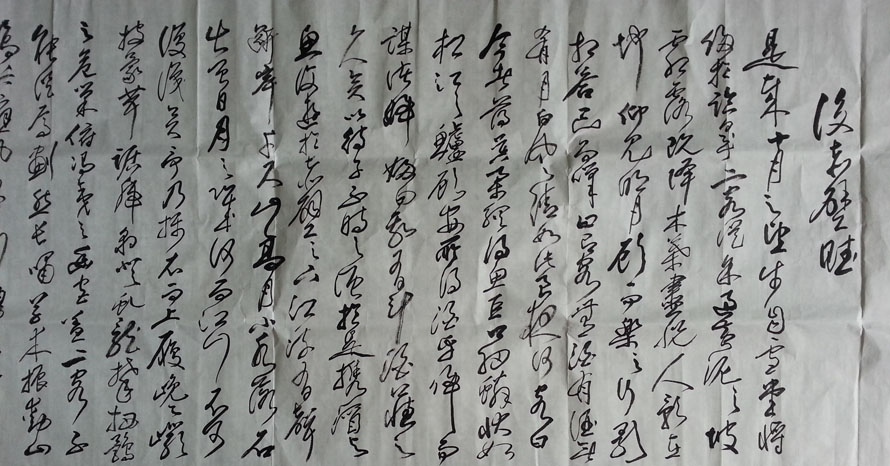 後赤壁賦
是歲十月之望步自雪堂將
歸於臨皋二客從予過黃泥之坂
霜露既降木葉盡脫人影在
地仰見明月顧而樂之行歌
相答已而嘆曰有客無酒有酒無
肴月白風清如此良夜何客曰
今者薄暮舉網得魚巨口細鱗狀如
松江之鱸顧安所得酒乎歸而
謀諸婦婦曰我有斗酒藏之
久矣以待子不時之須於是攜酒與
魚復遊於赤壁之下江流有聲
斷岸千尺山高月小水落石
出曾日月之幾何而江山不可
復識矣予乃攝衣而上履巉巖
披蒙茸踞虎豹登虬龍攀棲鶻
之危巢俯馮夷之幽宮蓋二客不
能從焉劃然長嘯草木振動山
鳴谷應風